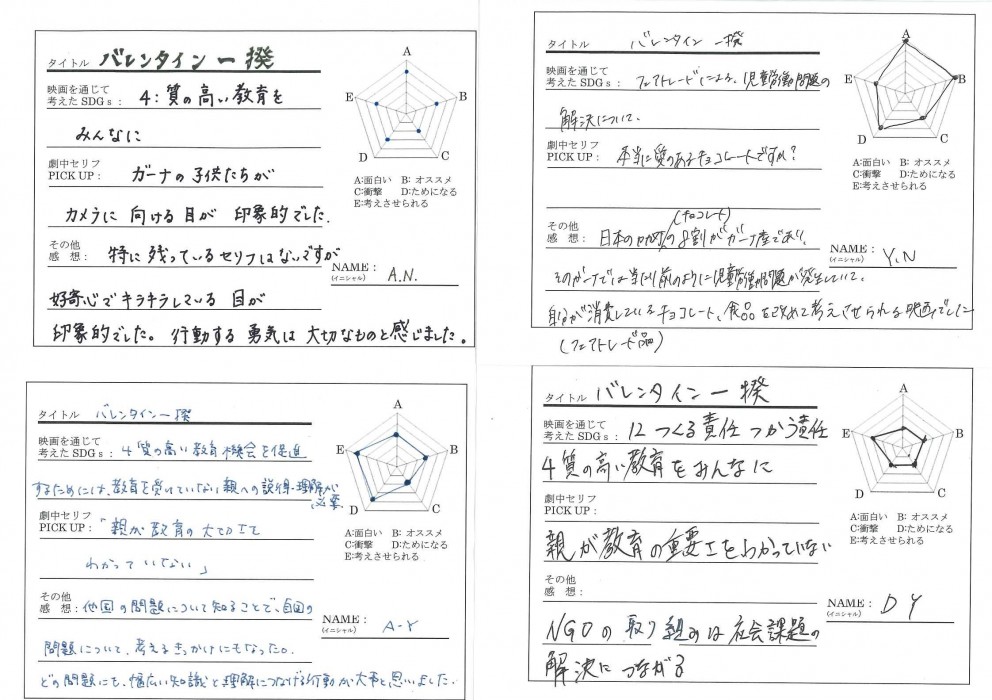 タイトル バレンタイン一揆
映画を通じて
考えたSDGs： 4：質の高い教育を
みんなに
劇中セリフ
PICK UP： ガーナの子供たちが
カメラに向ける目が印象的でした.
その他
感想： 特に残っているセリフはないですが
好奇心でキラキラしている目が
印象的でした。行動する勇気は大切なものと感じました。
A
B
C
D
E
A:面白い B: オススメ
C:衝撃 D:ためになる
E:考えさせられる
NAME：
(イニシャル)
A.N.
タイトル バレンタイン一揆
映画を通じて
考えたSDGs： フェアトレードによる、児童労働問題の
解決について.
劇中セリフ
PICK UP： 本当に愛のあるチョコレートですか?
その他
感想： 日本の の8割がガーナ産であり、
(チョコレート)
そのガーナでは当たり前のように児童労働問題が発生していて.
自分が消費しているチョコレート、食品を改めて考えさせられる映画でした
(フェアトレード品)
A
B
C
D
E
A:面白い B: オススメ
C:衝撃 D:ためになる
E:考えさせられる
NAME：
(イニシャル)
Y.N
タイトル バレンタイン一揆
映画を通じて
考えたSDGs： 4 質の高い教育機会を促進
するためには、教育を受けていない親への説得・理解が
必要
劇中セリフ
PICK UP： 「親が教育の大切さを
わかっていない」
その他
感想： 他国の問題について知ることで、自国の
問題について、考えるきっかけにもなった。
どの問題にも、幅広い知識と理解につなげる行動が大事と思いました.
A
B
C
D
E
A:面白い B: オススメ
C:衝撃 D:ためになる
E:考えさせられる
NAME：
(イニシャル)
A-Y
タイトル バレンタイン一揆
映画を通じて
考えたSDGs： 12 つくる責任 つかう責任
4 質の高い教育をみんなに
劇中セリフ
PICK UP：
親が教育の重要さをわかっていない
その他
感想：
NGOの取り組みは社会課題の
解決につながる
A
B
C
D
E
A:面白い B: オススメ
C:衝撃 D:ためになる
E:考えさせられる
NAME：
(イニシャル)
D Y